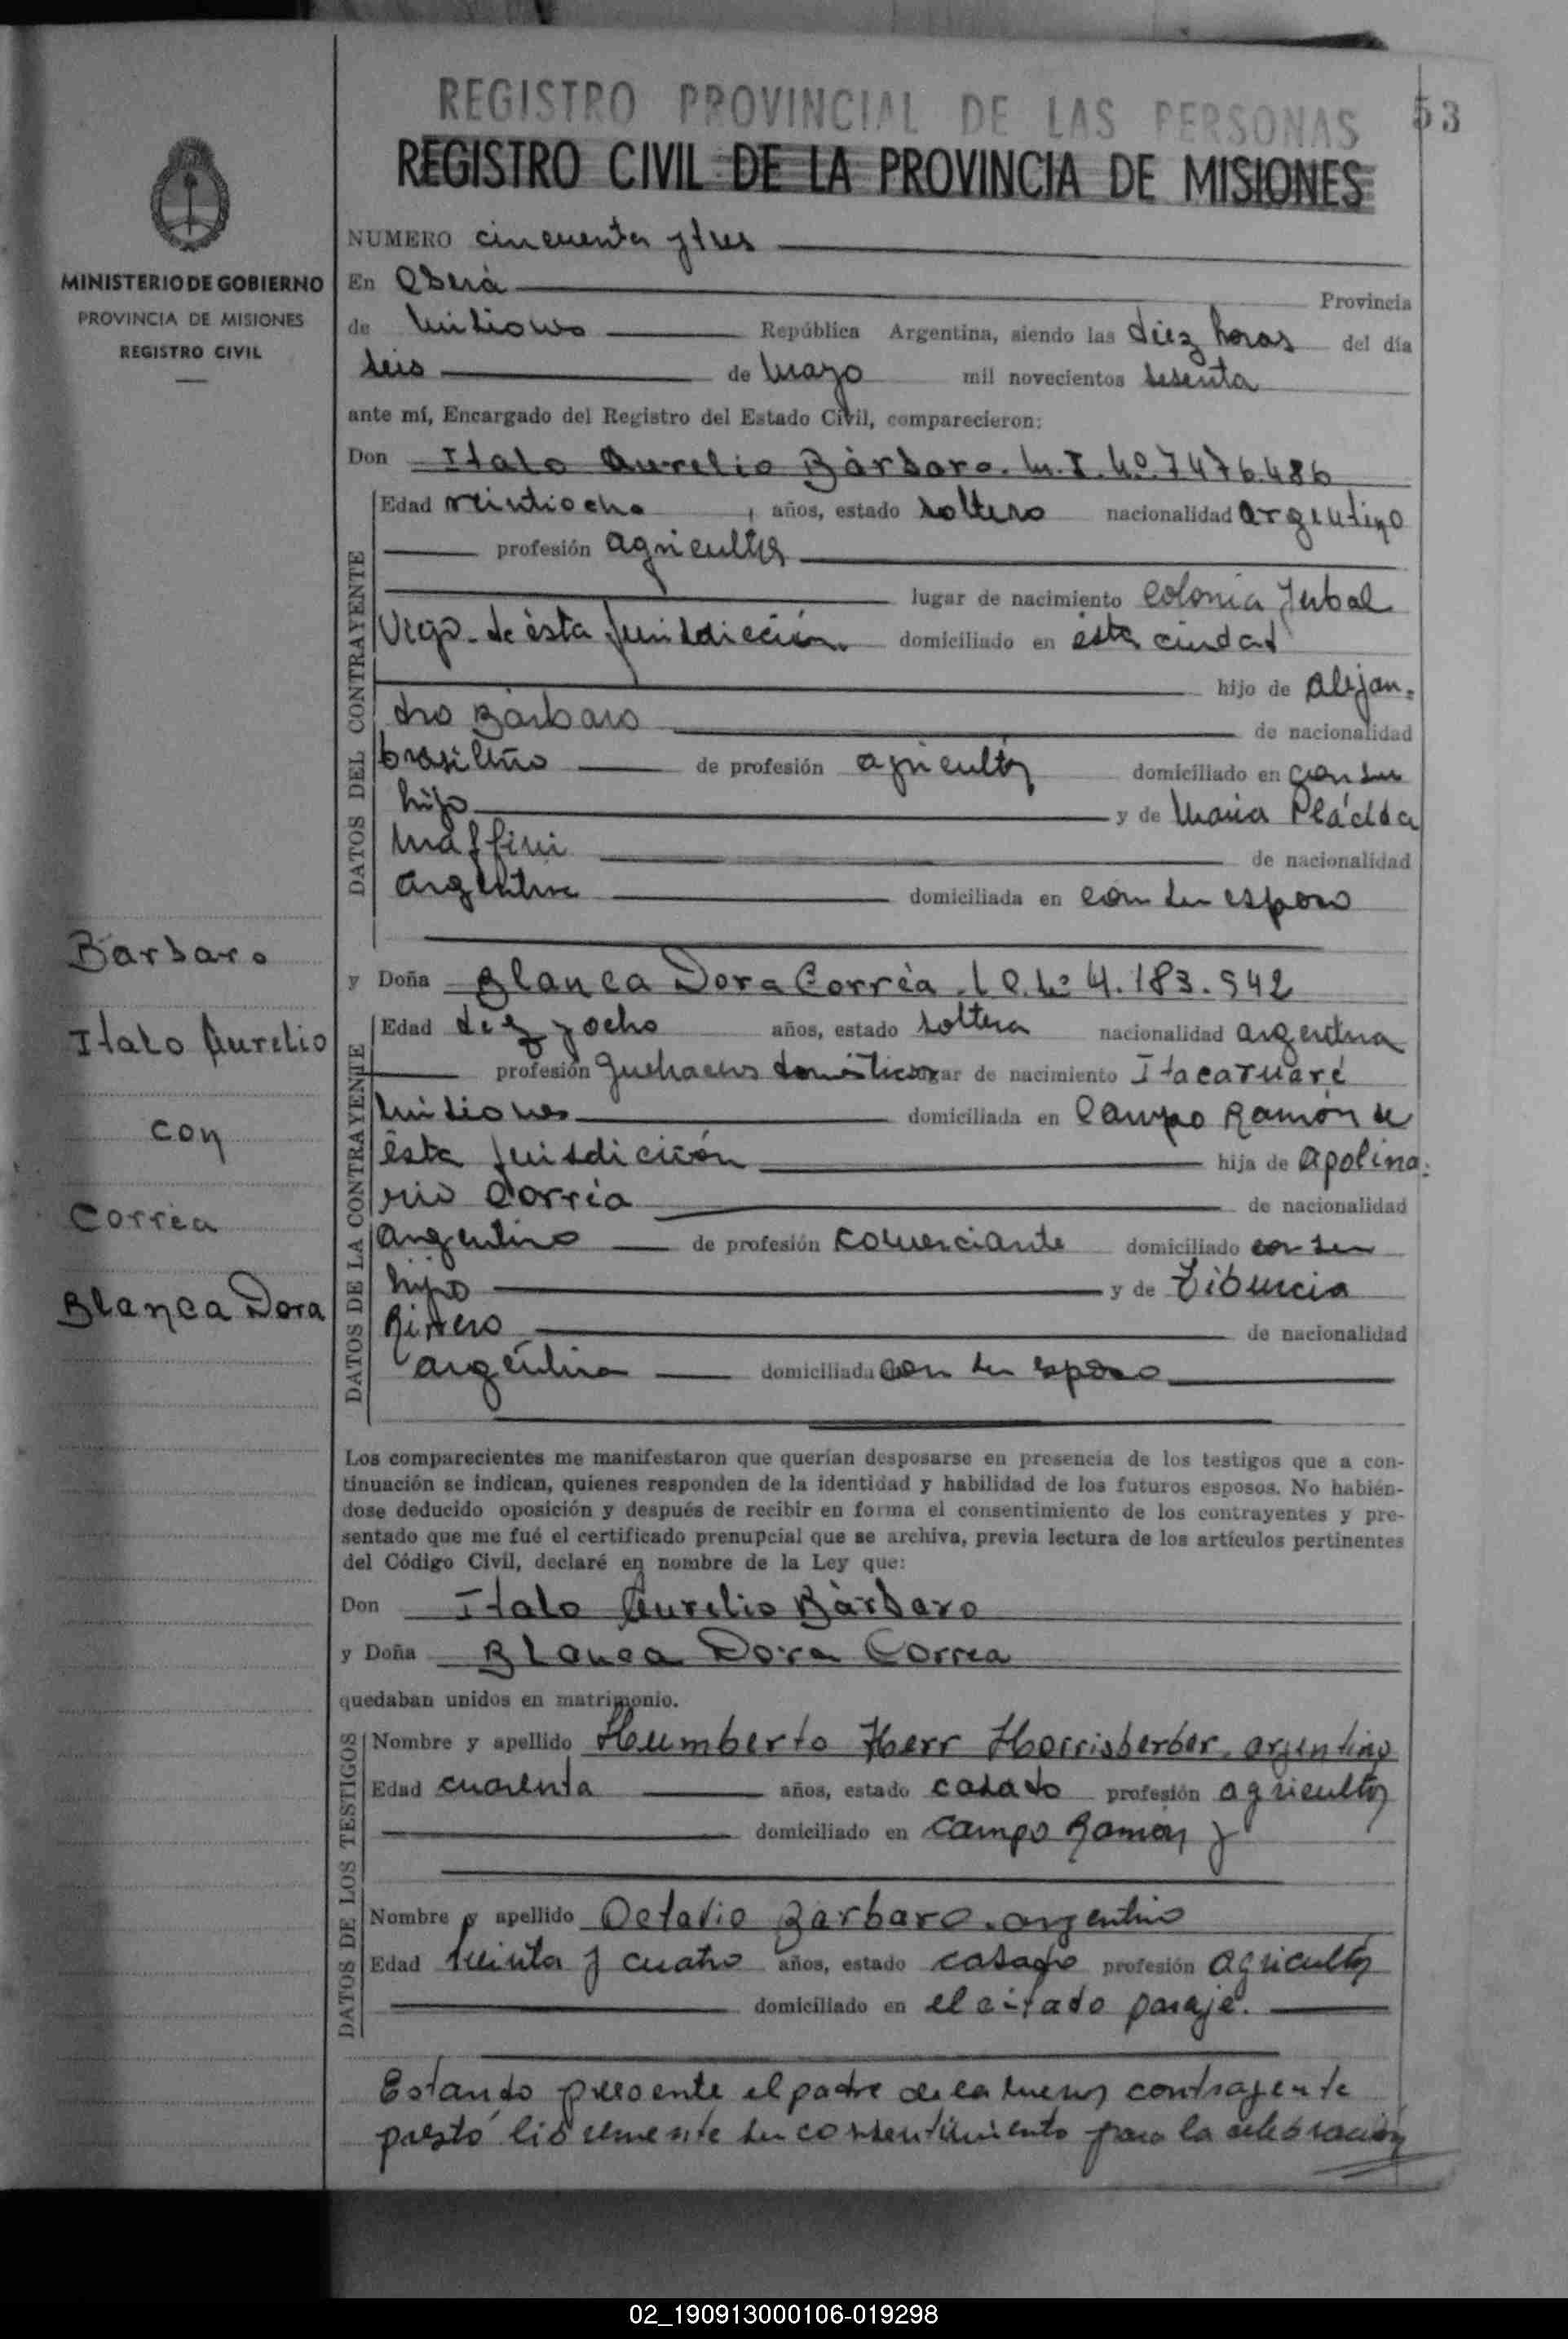 REGISTRO PROVINCIAL DE LAS PERSONAS
53
REGISTRO CIVIL DE LA PROVINCIA DE MISIONES
MINISTERIO DE GOBIERNO
PROVINCIA DE MISIONES
REGISTRO CIVIL
NUMERO cincuenta y tres
En Oberá Provincia
de Misiones República Argentina, siendo las diez horas del día
seis de Mayo mil novecientos sesenta
ante mí, Encargado del Registro del Estado Civil, comparecieron:
Don Italo Aurelio Bàrbaro. M.I.Nº.7476.486
Edad veintiocho años, estado soltero nacionalidad argentino
profesión agricultor
lugar de nacimiento Colonia Yerbal
de ésta Jurisdicción. domiciliado en ésta ciudad
hijo de Alejan-
dro Bàrbaro de nacionalidad
brasileño de profesión agricultor domiciliado en con su
hijo y de Maria Plácida
Maffini de nacionalidad
argentina domiciliada en con su esposo
y Doña Blanca Dora Corrèa. L.C.Nº 4.183.942
Edad diez y ocho años, estado soltera nacionalidad argentina
profesión Quehaceres domésticos lugar de nacimiento Itacaruaré
Misiones domiciliada en Campo Ramón de
ésta Jurisdicción hija de Apolina-
rio Corrèa de nacionalidad
argentino de profesión comerciante domiciliado con su
hija y de Tiburcia
de nacionalidad
argentina domiciliada con su esposo
Barbaro
Italo Aurelio
con
Corrèa
Blanca Dora
DATOS DEL CONTRAYENTE
DATOS DE LA CONTRAYENTE
Los comparecientes me manifestaron que querían desposarse en presencia de los testigos que a con-
tinuación se indican, quienes responden de la identidad y habilidad de los futuros esposos. No habién-
dose deducido oposición y después de recibir en forma el consentimiento de los contrayentes y pre-
sentado que me fué el certificado prenupcial que se archiva, previa lectura de los artículos pertinentes
del Código Civil, declaré en nombre de la Ley que:
Don Italo Aurelio Bàrbaro
y Doña Blanca Dora Correa
quedaban unidos en matrimonio.
DATOS DE LOS TESTIGOS
Nombre y apellido Humberto Herr Horrisberber. argentino
Edad cuarenta años, estado casado profesión agricultor
domiciliado en Campo Ramón y
Nombre y apellido Octavio Barbaro. argentino
Edad treinta y cuatro años, estado casado profesión agricultor
domiciliado en el citado paraje.
Estando presente el padre de la menor contrayente
prestó libremente su consentimiento para la celebración
02_190913000106-019298